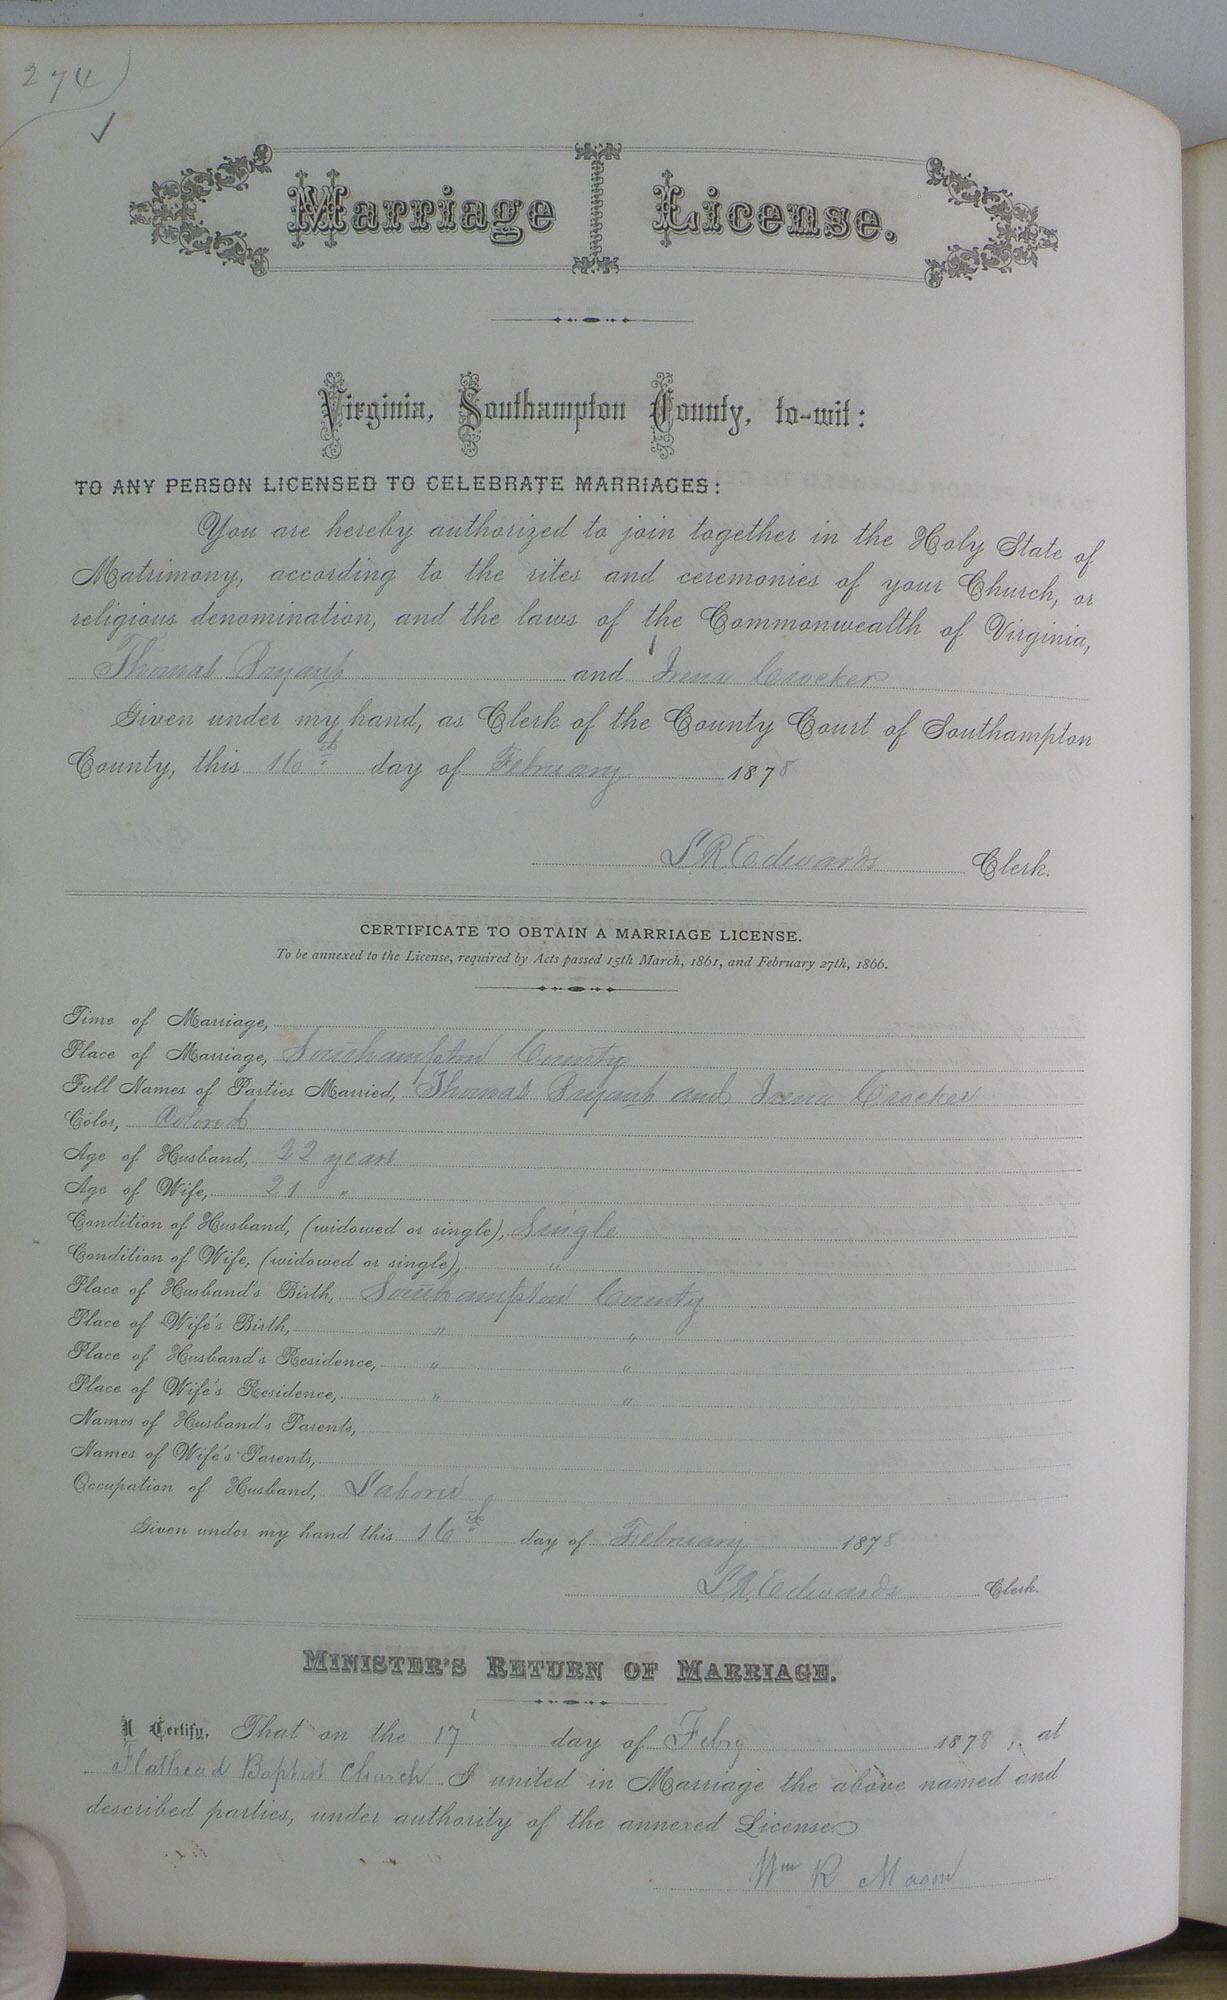 274
Marriage License.
Virginia, Southampton County, to-wit:
TO ANY PERSON LICENSED TO CELEBRATE MARRIAGES:
You are hereby authorized to join together in the Holy State of
Matrimony, according to the rites and ceremonies of your Church, or
religious denomination, and the laws of the Commonwealth of Virginia,
Thomas Bryant and Irena Crocker
Given under my hand, as Clerk of the County Court of Southampton
County, this 16th day of February 1878
L R Edwards Clerk.
CERTIFICATE TO OBTAIN A MARRIAGE LICENSE.
To be annexed to the License, required by Acts passed 15th March, 1861, and February 27th, 1866.
Time of Marriage,
Place of Marriage, Southampton County
Full Names of Parties Married, Thomas Bryant and Irena Crocker
Color, Colored
Age of Husband, 22 years
Age of Wife, 21 "
Condition of Husband, (widowed or single), Single
Condition of Wife, (widowed or single), "
Place of Husband's Birth, Southampton County
Place of Wife's Birth, " "
Place of Husband's Residence, " "
Place of Wife's Residence, " "
Names of Husband's Parents,
Names of Wife's Parents,
Occupation of Husband, Laborer
Given under my hand this 16th day of February 1878
L R Edwards Clerk.
MINISTER'S RETURN OF MARRIAGE.
I Certify, That on the 17 day of Febry 1878, at
Flathead Baptist Church I united in Marriage the above named and
described parties, under authority of the annexed License.
Wm R Mason